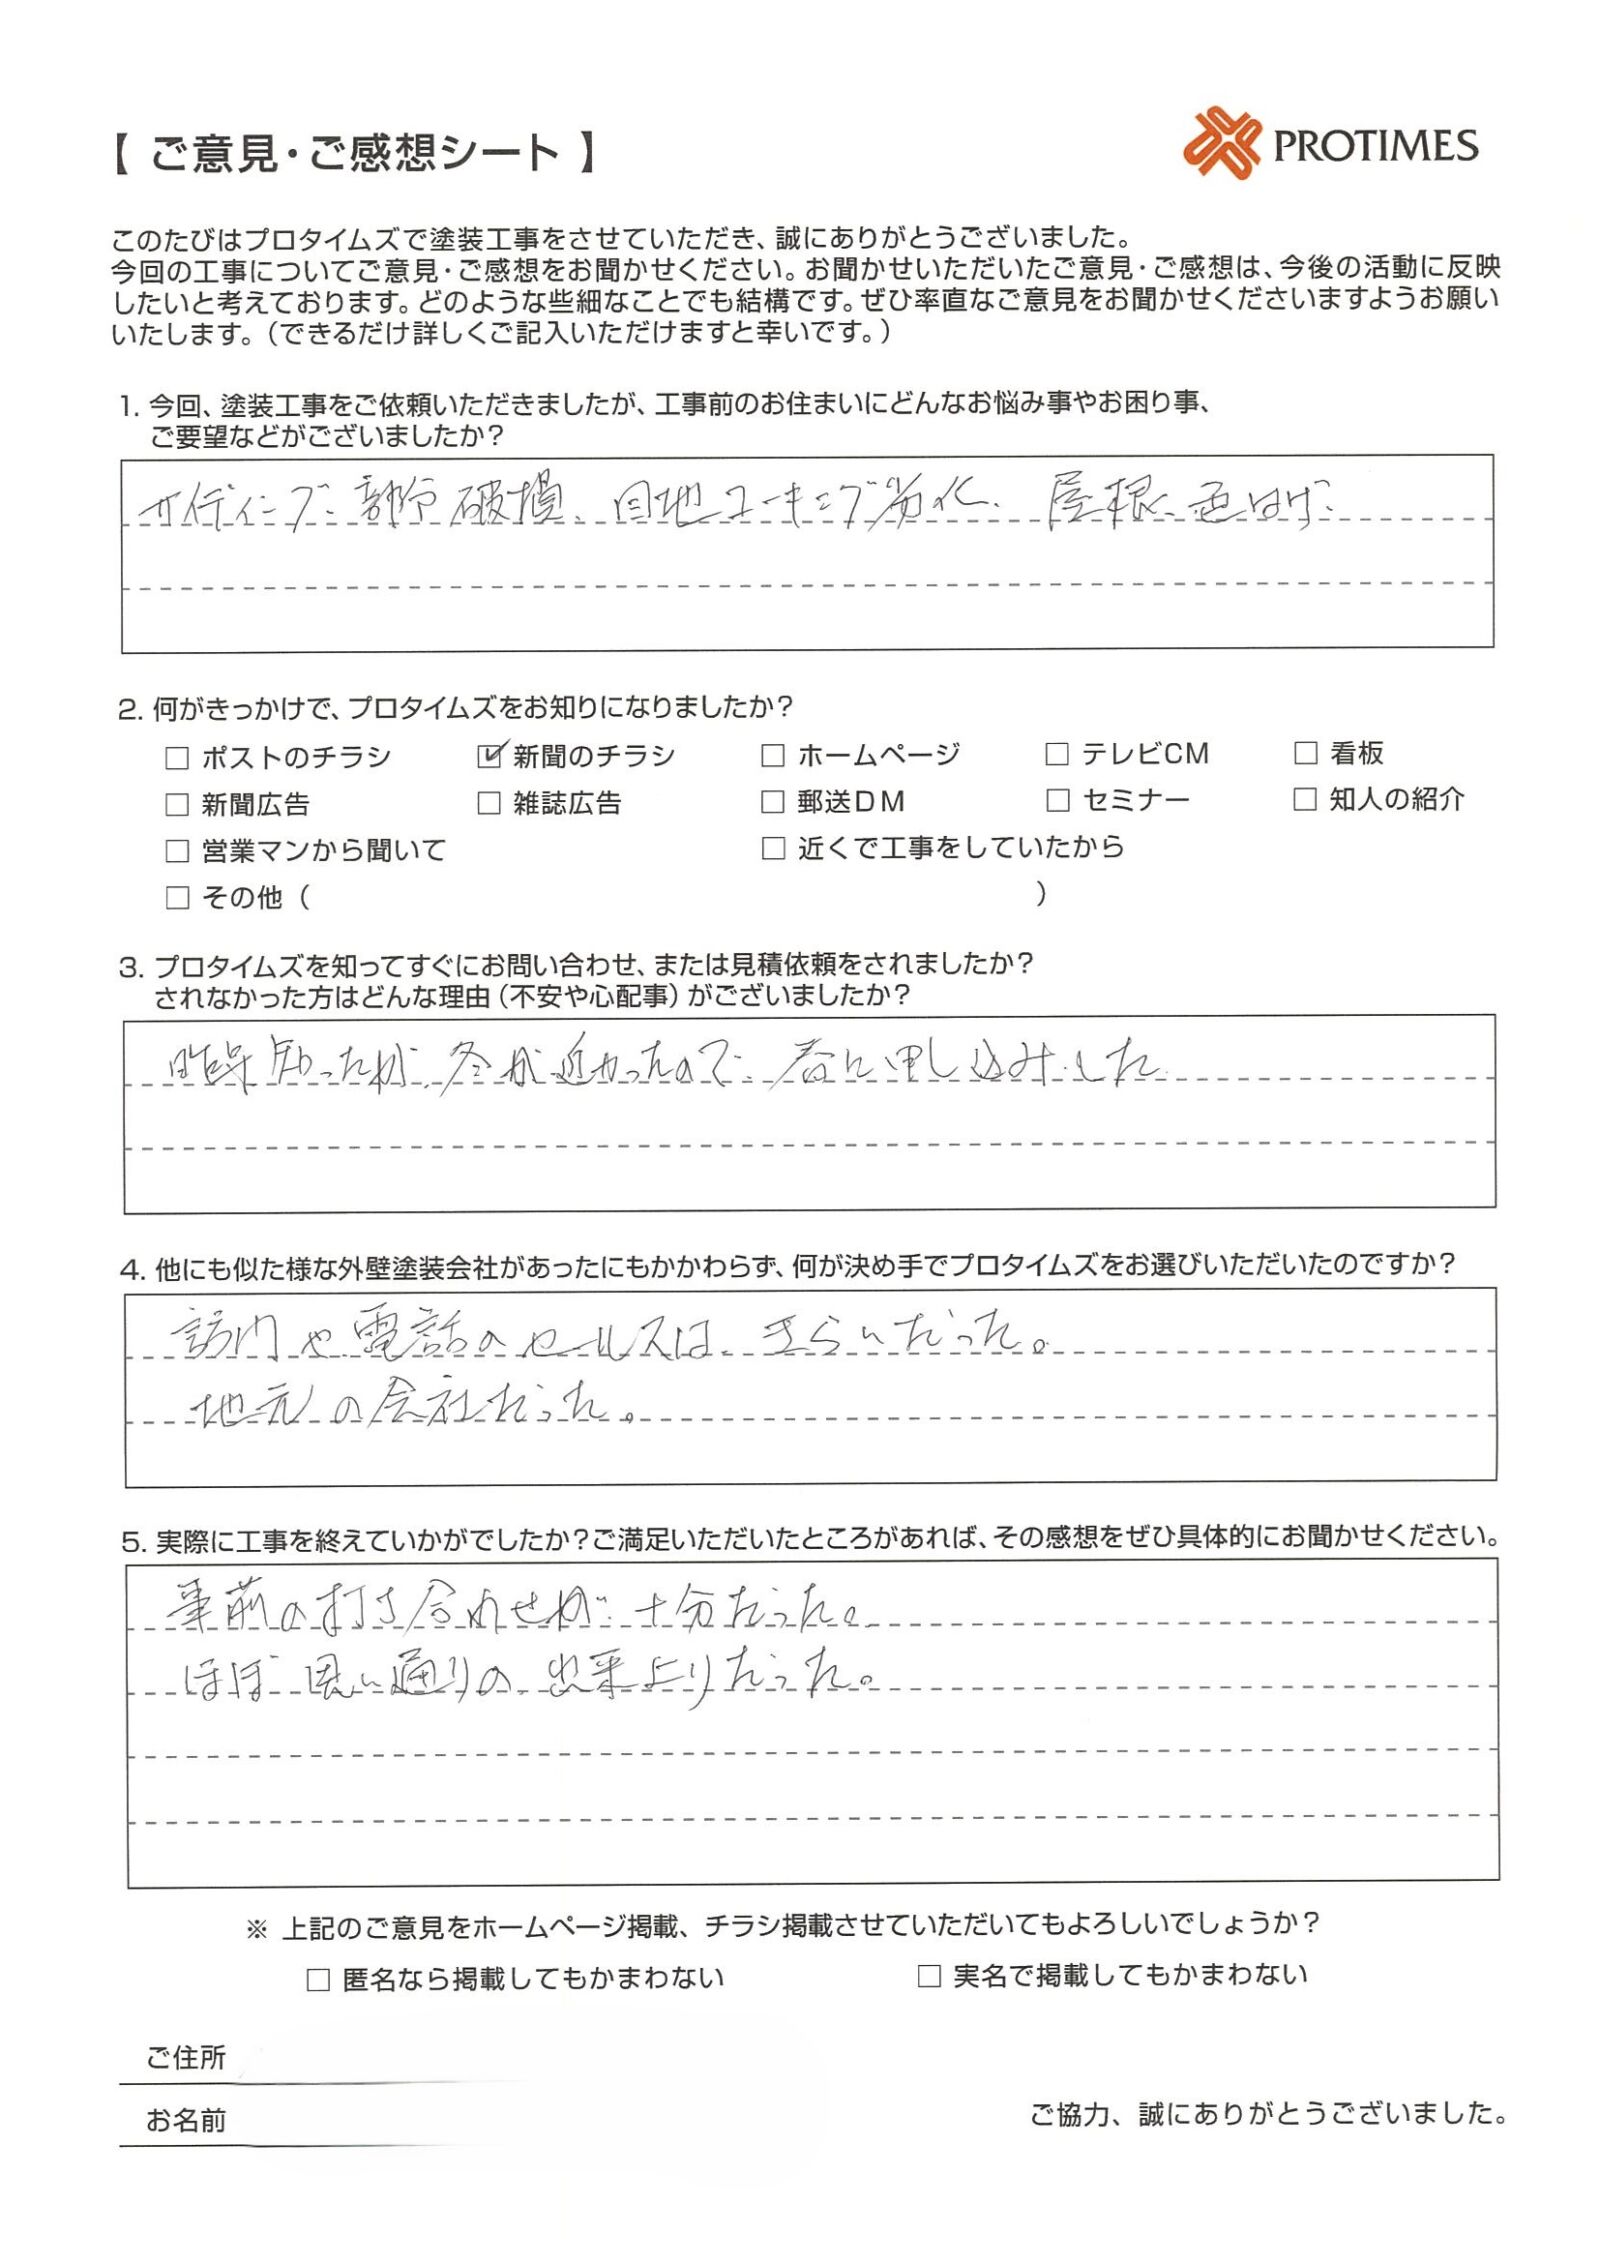 【 ご意見・ご感想シート 】
PROTIMES
このたびはプロタイムズで塗装工事をさせていただき、誠にありがとうございました。
今回の工事についてご意見・ご感想をお聞かせください。お聞かせいただいたご意見・ご感想は、今後の活動に反映
したいと考えております。どのような些細なことでも結構です。ぜひ率直なご意見をお聞かせくださいますようお願い
いたします。（できるだけ詳しくご記入いただけますと幸いです。）
1. 今回、塗装工事をご依頼いただきましたが、工事前のお住まいにどんなお悩み事やお困り事、
ご要望などがございましたか？
サイディング部分破損、目地コーキング劣化、屋根、色はげ
2. 何がきっかけで、プロタイムズをお知りになりましたか？
□ ポストのチラシ ☑ 新聞のチラシ □ ホームページ □ テレビCM □ 看板
□ 新聞広告 □ 雑誌広告 □ 郵送DM □ セミナー □ 知人の紹介
□ 営業マンから聞いて □ 近くで工事をしていたから
□ その他（ ）
3. プロタイムズを知ってすぐにお問い合わせ、または見積依頼をされましたか？
されなかった方はどんな理由（不安や心配事）がございましたか？
昨年知ったが、冬が近かったので、春に申し込みした
4. 他にも似た様な外壁塗装会社があったにもかかわらず、何が決め手でプロタイムズをお選びいただいたのですか？
訪門や電話のセールスは、きらいだった。
地元の会社だった。
5. 実際に工事を終えていかがでしたか？ご満足いただいたところがあれば、その感想をぜひ具体的にお聞かせください。
事前の打ち合わせが十分だった。
ほぼ思い通りの出来上りだった。
※ 上記のご意見をホームページ掲載、チラシ掲載させていただいてもよろしいでしょうか？
□ 匿名なら掲載してもかまわない □ 実名で掲載してもかまわない
ご住所
お名前
ご協力、誠にありがとうございました。